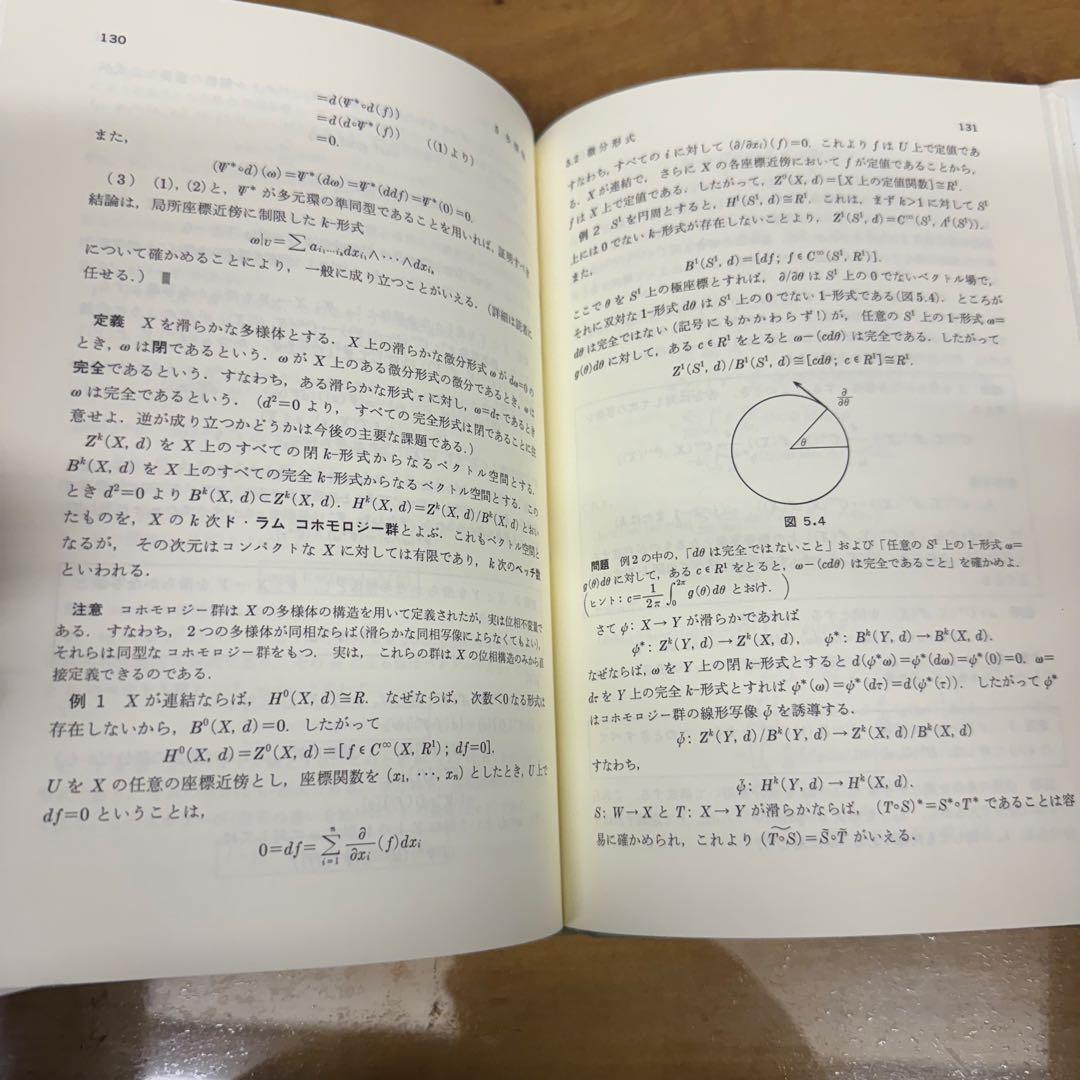 130
=d(Ψ*∘d(f))
=d(d∘Ψ*(f)) ((1)より)
=0.
また,
(Ψ*∘d)(ω)=Ψ*(dω)=Ψ*(ddf)=Ψ*(0)=0.
(3) (1), (2)と, Ψ* が多元環の準同型であることを用いれば, 証明すべき
結論は, 局所座標近傍に制限した k-形式
ω|_U=∑ a_{i₁,…,i_k}dx_{i₁}∧⋯∧dx_{i_k}
について確かめることにより, 一般に成り立つことがいえる. (詳細は読者に
任せる.) ▮
定義 X を滑らかな多様体とする. X 上の滑らかな微分形式 ω が dω=0 の
とき, ω は閉であるという. ω が X 上のある微分形式の微分であるとき, ω は
完全であるという. すなわち, ある滑らかな形式 τ に対し, ω=dτ であるとき
ω は完全であるという. (d²=0 より, すべての完全形式は閉であることに注
意せよ. 逆が成り立つかどうかは今後の主要な課題である.)
Zᵏ(X, d) を X 上のすべての閉 k-形式からなるベクトル空間とする.
Bᵏ(X, d) を X 上のすべての完全 k-形式からなるベクトル空間とする. この
とき d²=0 より Bᵏ(X, d)⊂Zᵏ(X, d). Hᵏ(X, d)=Zᵏ(X, d)/Bᵏ(X, d) とおい
たものを, X の k 次ド・ラム コホモロジー群とよぶ. これもベクトル空間と
なるが, その次元はコンパクトな X に対しては有限であり, k 次のベッチ数
といわれる.
注意 コホモロジー群は X の多様体の構造を用いて定義されたが, 実は位相不変量で
ある. すなわち, 2つの多様体が同相ならば(滑らかな同相写像によらなくてもよい),
それらは同型なコホモロジー群をもつ. 実は, これらの群は X の位相構造のみから直
接定義できるのである.
例 1 X が連結ならば, H⁰(X, d)≅R. なぜならば, 次数<0 なる形式は
存在しないから, B⁰(X, d)=0. したがって
H⁰(X, d)=Z⁰(X, d)=[f∈C^∞(X, R¹); df=0].
U を X の任意の座標近傍とし, 座標関数を (x₁, ⋯, xₙ) としたとき, U 上で
df=0 ということは,
0=df=∑_{i=1}^{n} ∂/∂xᵢ (f)dxᵢ
5.2 微分形式 131
すなわち, すべての i に対して (∂/∂xᵢ)(f)=0. これより f は U 上で定値であ
る. X が連結で, さらに X の各座標近傍において f が定値であることから,
f は X 上で定値である. したがって, Z⁰(X, d)=[X 上の定値関数]≅R¹.
例 2 S¹ を円周とすると, H¹(S¹, d)≅R¹. これは, まず k>1 に対して S¹
上には 0 でない k-形式が存在しないことより, Z¹(S¹, d)=C^∞(S¹, Λ¹(S¹)).
また,
B¹(S¹, d)=[df; f∈C^∞(S¹, R¹)].
ここで θ を S¹ 上の極座標とすれば, ∂/∂θ は S¹ 上の 0 でないベクトル場で,
それに双対な 1-形式 dθ は S¹ 上の 0 でない 1-形式である(図5.4). ところが
dθ は完全ではない(記号にもかかわらず!)が, 任意の S¹ 上の 1-形式 ω=
g(θ)dθ に対して, ある c∈R¹ をとると ω−(cdθ) は完全である. したがって
Z¹(S¹, d)/B¹(S¹, d)≅[cdθ; c∈R¹]≅R¹.
∂/∂θ
θ
図 5.4
問題 例2の中の,「dθ は完全ではないこと」および「任意の S¹ 上の 1-形式 ω=
g(θ)dθ に対して, ある c∈R¹ をとると, ω−(cdθ) は完全であること」を確かめよ.
(ヒント: c=1/2π ∫₀^{2π} g(θ)dθ とおけ.)
さて ψ: X→Y が滑らかであれば
ψ*: Zᵏ(Y, d)→Zᵏ(X, d), ψ*: Bᵏ(Y, d)→Bᵏ(X, d).
なぜならば, ω を Y 上の閉 k-形式とすると d(ψ*ω)=ψ*(dω)=ψ*(0)=0. ω=
dτ を Y 上の完全 k-形式とすれば ψ*(ω)=ψ*(dτ)=d(ψ*(τ)). したがって ψ*
はコホモロジー群の線形写像 ψ̃ を誘導する.
ψ̃: Zᵏ(Y, d)/Bᵏ(Y, d)→Zᵏ(X, d)/Bᵏ(X, d)
すなわち,
ψ̃: Hᵏ(Y, d)→Hᵏ(X, d).
S: W→X と T: X→Y が滑らかならば, (T∘S)*=S*∘T* であることは容
易に確かめられ, これより (T∘S)~=S̃∘T̃ がいえる.